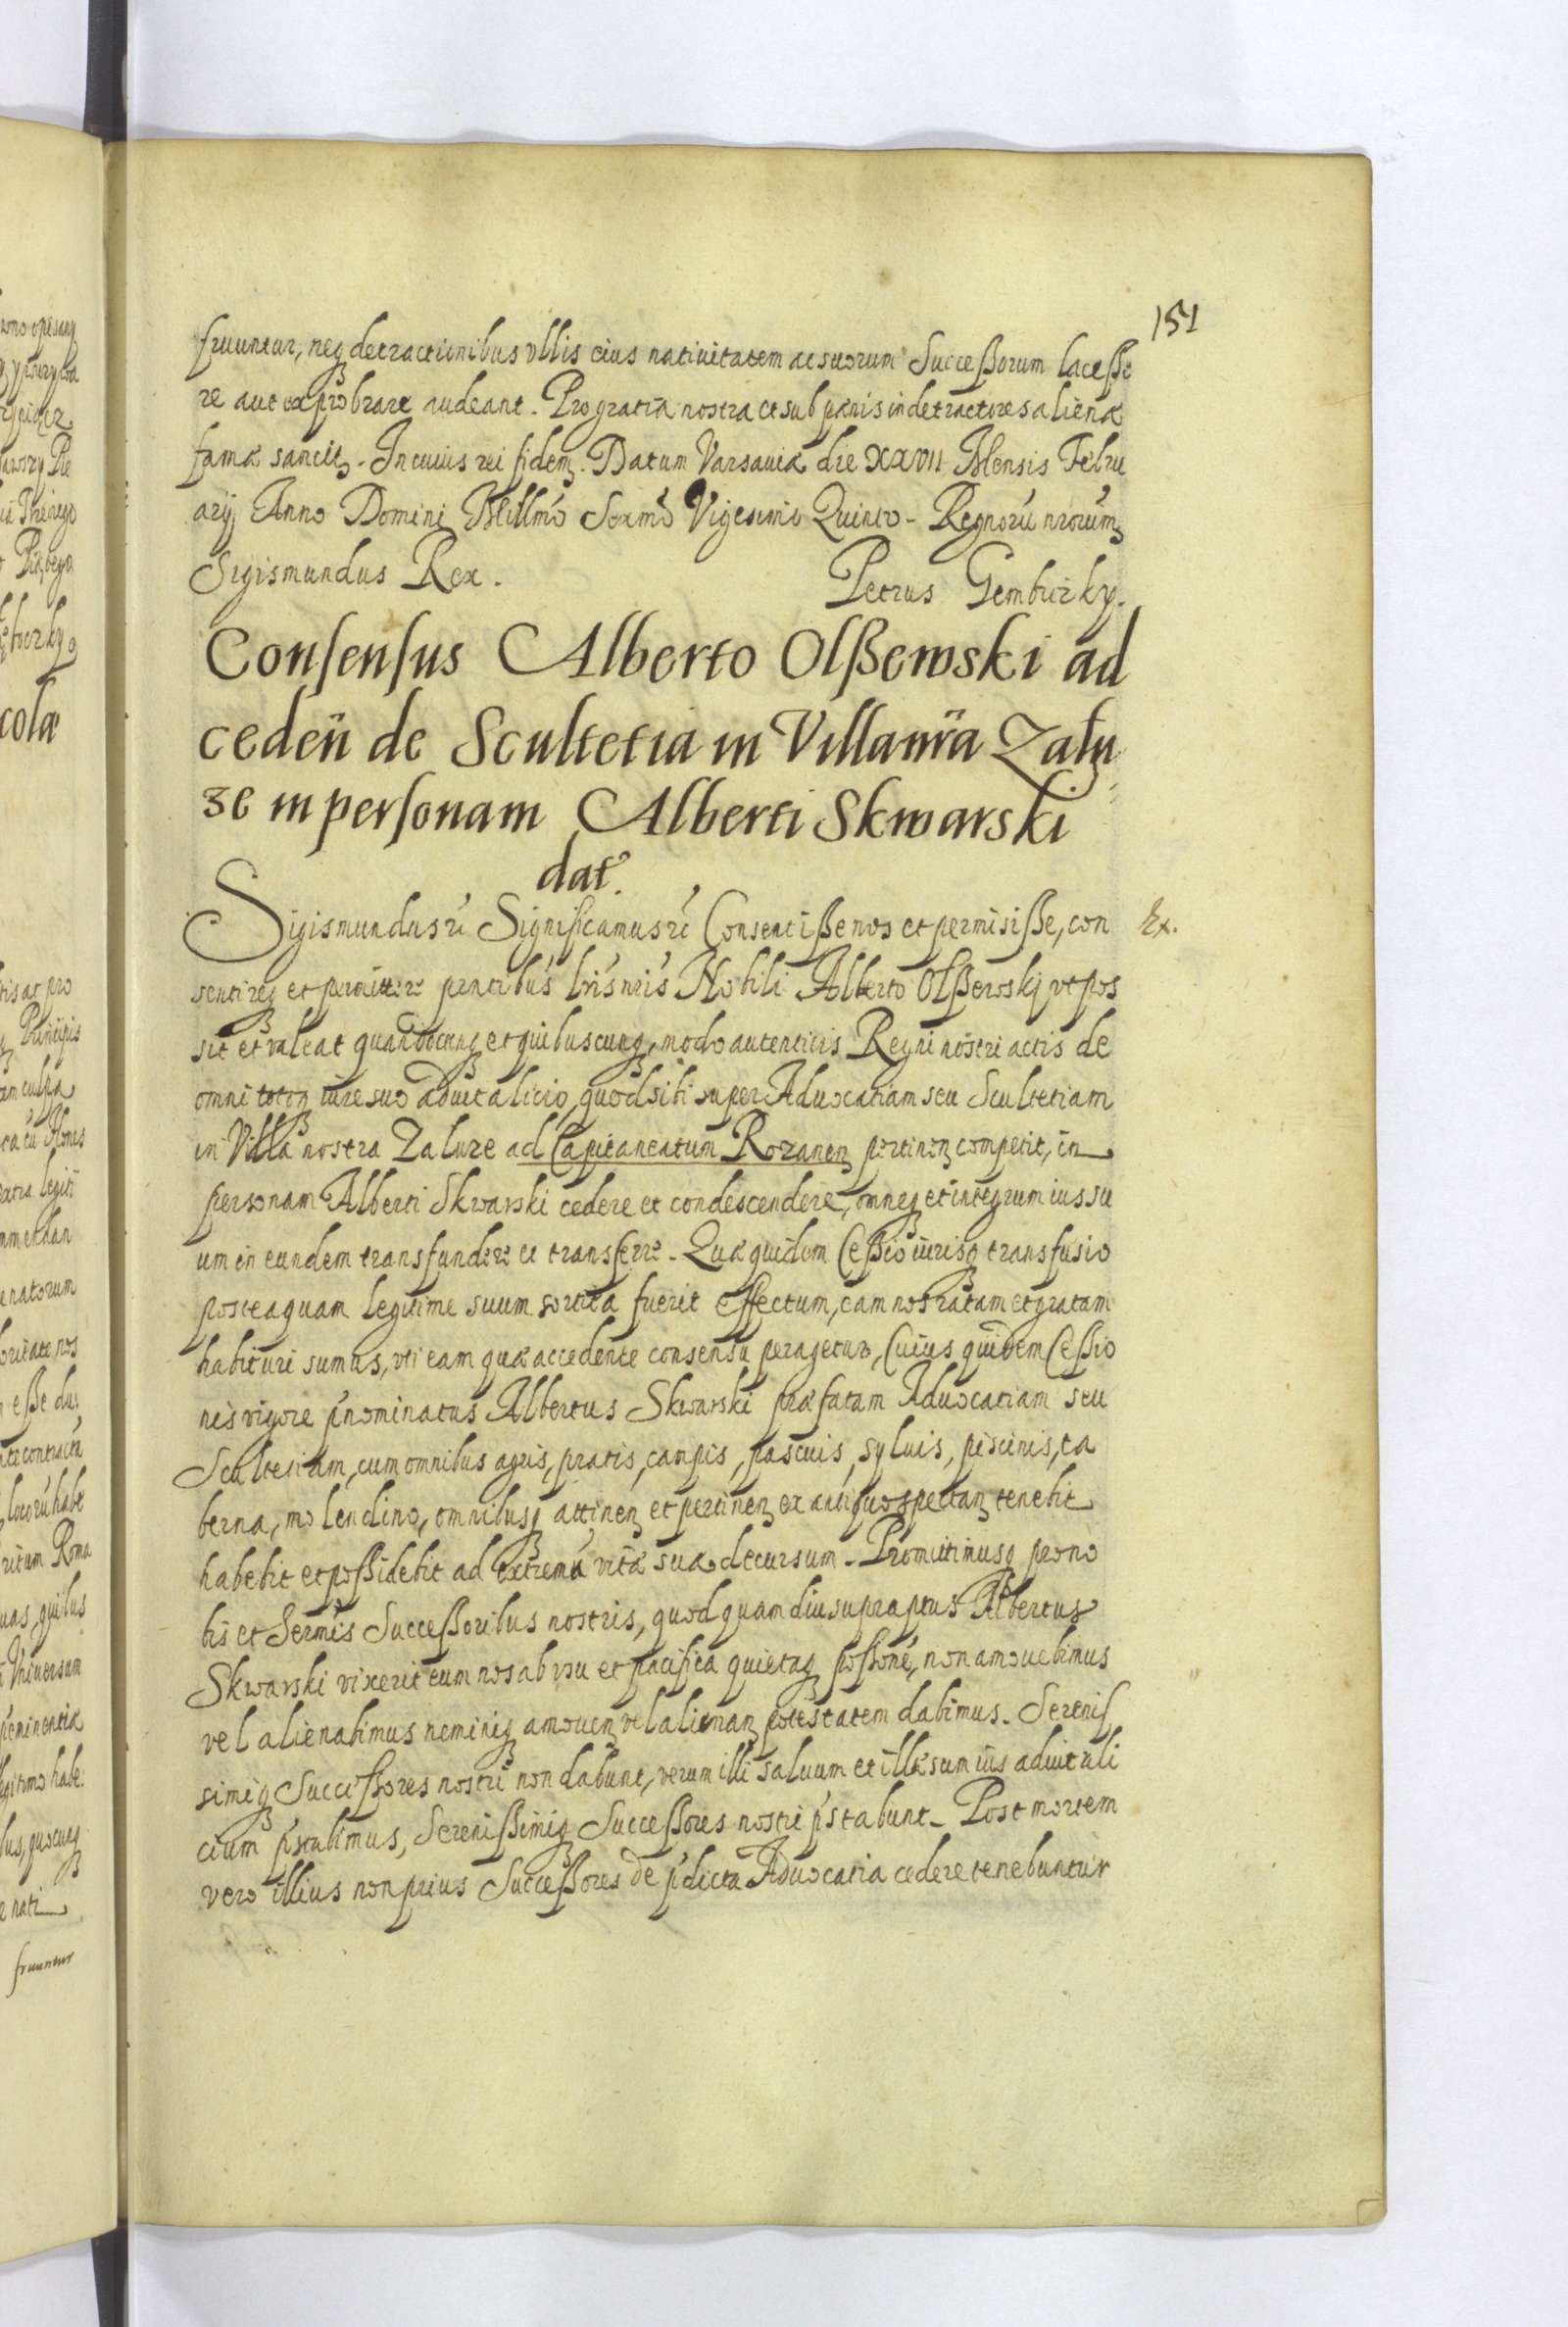 151
fruuntur, neq₃ detractionibus vllis eius natiuitatem ac suorum Succeßorum laceße
re aut exprobrare audeant. Pro gratia nostra et sub pœnis in detractores alienæ
famæ sancitȝ. In cuius rei fidemȝ. Datum Varsauiæ die XXVII Mensis Febru
arij Anno Domini Millmo Sexmo Vigesimo Quinto - Regnorū nrorumȝ
Sigismundus Rex. Petrus Gembicky.
Consensus Alberto Olßewski ad
cedeñ de Scultetia in Villa nr̃a Zalu
ze in personam Alberti Skwarski
dat̃.
Sigismundus rc̃ Significamus rc̃ Consentiße nos et permisiße, con
Ex.
sentireq₃ et permittere pntibus lris nris Nobili Alberto Olßewskj vt pos
sit et valeat quandocunq₃ et quibuscunq₃, modo autenticis Regni nostri actis de
omni totoq₃ iure suo aduitalicio, quod sibi super Aduocatiam seu Scultetiam
in Villa nostra Zaluze ad Capitaneatum Rozanenȝ pertinenȝ competit, in
personam Alberti Skwarski cedere et condescendere, omneq₃ et integrum ius su
um in eundem transfundere et transferre. Quæ quidem Ceßio iurisq₃ transfusio
posteaquam legitime suum sortita fuerit effectum, eam nos ratam et gratam
habituri sumus, vti eam quæ accedente consensu peragetur, Cuius quidem Ceßio
nis vigore p̃nominatus Albertus Skwarski præfatam Aduocatiam seu
Scultetiam, cum omnibus agris, pratis, campis, pascuis, syluis, piscinis, ta
berna, molendino, omnibusq₃ attinenȝ et pertinenȝ ex antiquo spectanȝ tenebit
habebit et poßidebit ad extremū vitæ suæ decursum - Promittimusq₃ pro no
bis et Sermis Succeßoribus nostris, quod quamdiu supraptus Albertus
Skwarski vixerit eum nos ab vsu et pacifica quietaq₃ poßone, non amouebimus
vel alienabimus neminiq₃ amouenȝ vel alienanȝ potestatem dabimus. Sereniſ
simiq₃ Succeßores nostri non dabunt, verum illi saluum et illæsum ius aduitali
cium p̃stabimus, Serenißimiq₃ Succeßores nostri p̃stabunt - Post mortem
vero illius non prius Succeßores de p̃dicta Aduocatia cedere tenebuntur